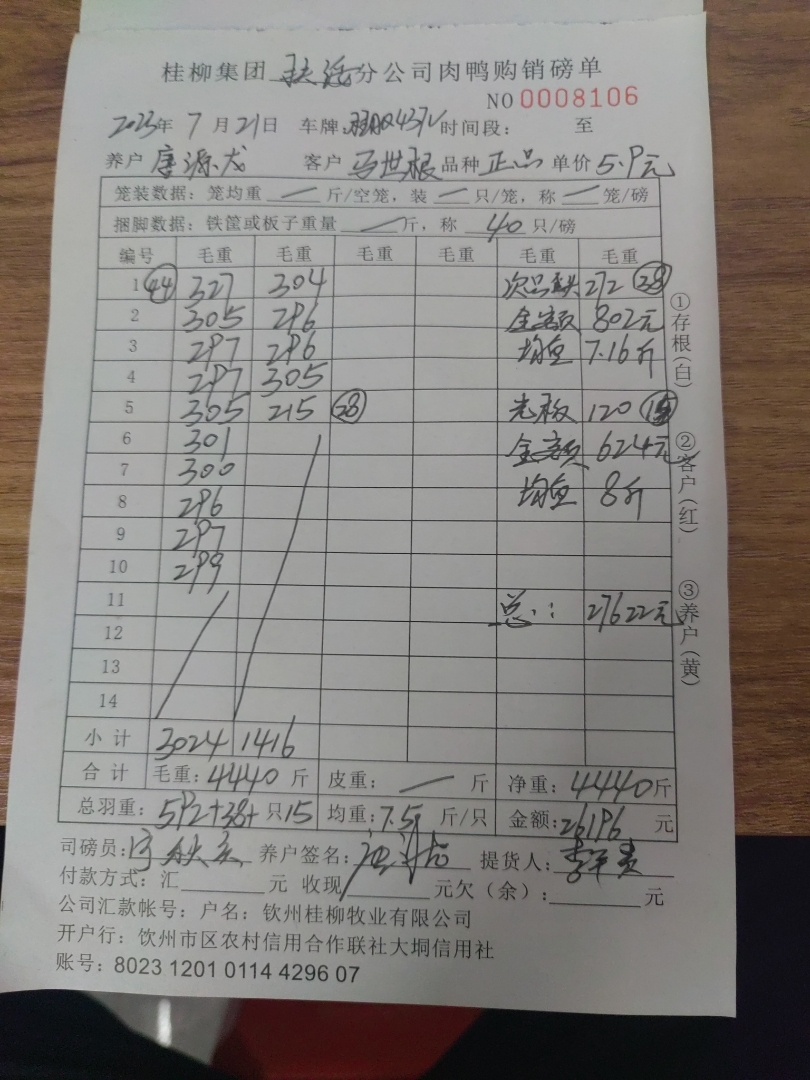 桂柳集团 扶绥 分公司肉鸭购销磅单
NO 0008106
2023年 7月21日 车牌 时间段: 至
养户 唐源龙 客户 马世根 品种 正品 单价 5.9元
笼装数据: 笼均重 一 斤/空笼, 装 一 只/笼, 称 一 笼/磅
捆脚数据: 铁筐或板子重量 一 斤, 称 40 只/磅
编号 毛重 毛重 毛重 毛重 毛重 毛重
1 (44) 327 304 次品 272 (38)
2 305 296 金额 802元
3 297 296 均重 7.16斤
4 297 305
5 305 215 (28) 光板 120 (15)
6 301 金额 624元
7 300 均重 8斤
8 296
9 297
10 299
11 总: 27622元
12
13
14
小计 3024 1416
合计 毛重: 4440 斤 皮重: 一 斤 净重: 4440 斤
总羽重: 592+38+15 只 均重: 7.5 斤/只 金额: 26196 元
司磅员: 养户签名: 提货人:
付款方式: 汇 元 收现 元欠(余): 元
公司汇款帐号: 户名: 钦州桂柳牧业有限公司
开户行: 饮州市区农村信用合作联社大垌信用社
账号: 8023 1201 0114 4296 07
①存根(白)
②客户(红)
③养户(黄)